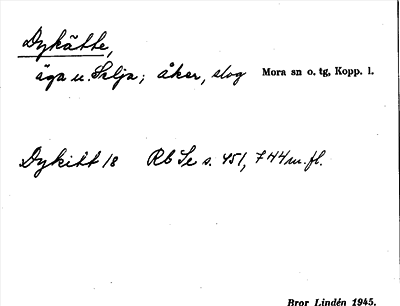 Dykätte,
äga u. Selja; åker, slog Mora sn o. tg, Kopp. l.
Dykitt 18 Rb Se s. 451, 744 m. fl.
Bror Lindén 1945.